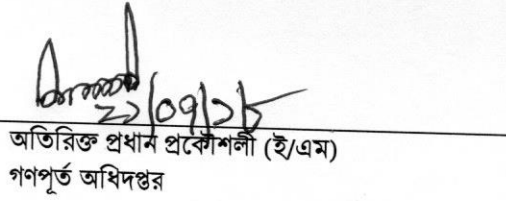 অতিরিক্ত প্রধান প্রকৌশলী (ই/এম)
গণপূর্ত অধিদপ্তর